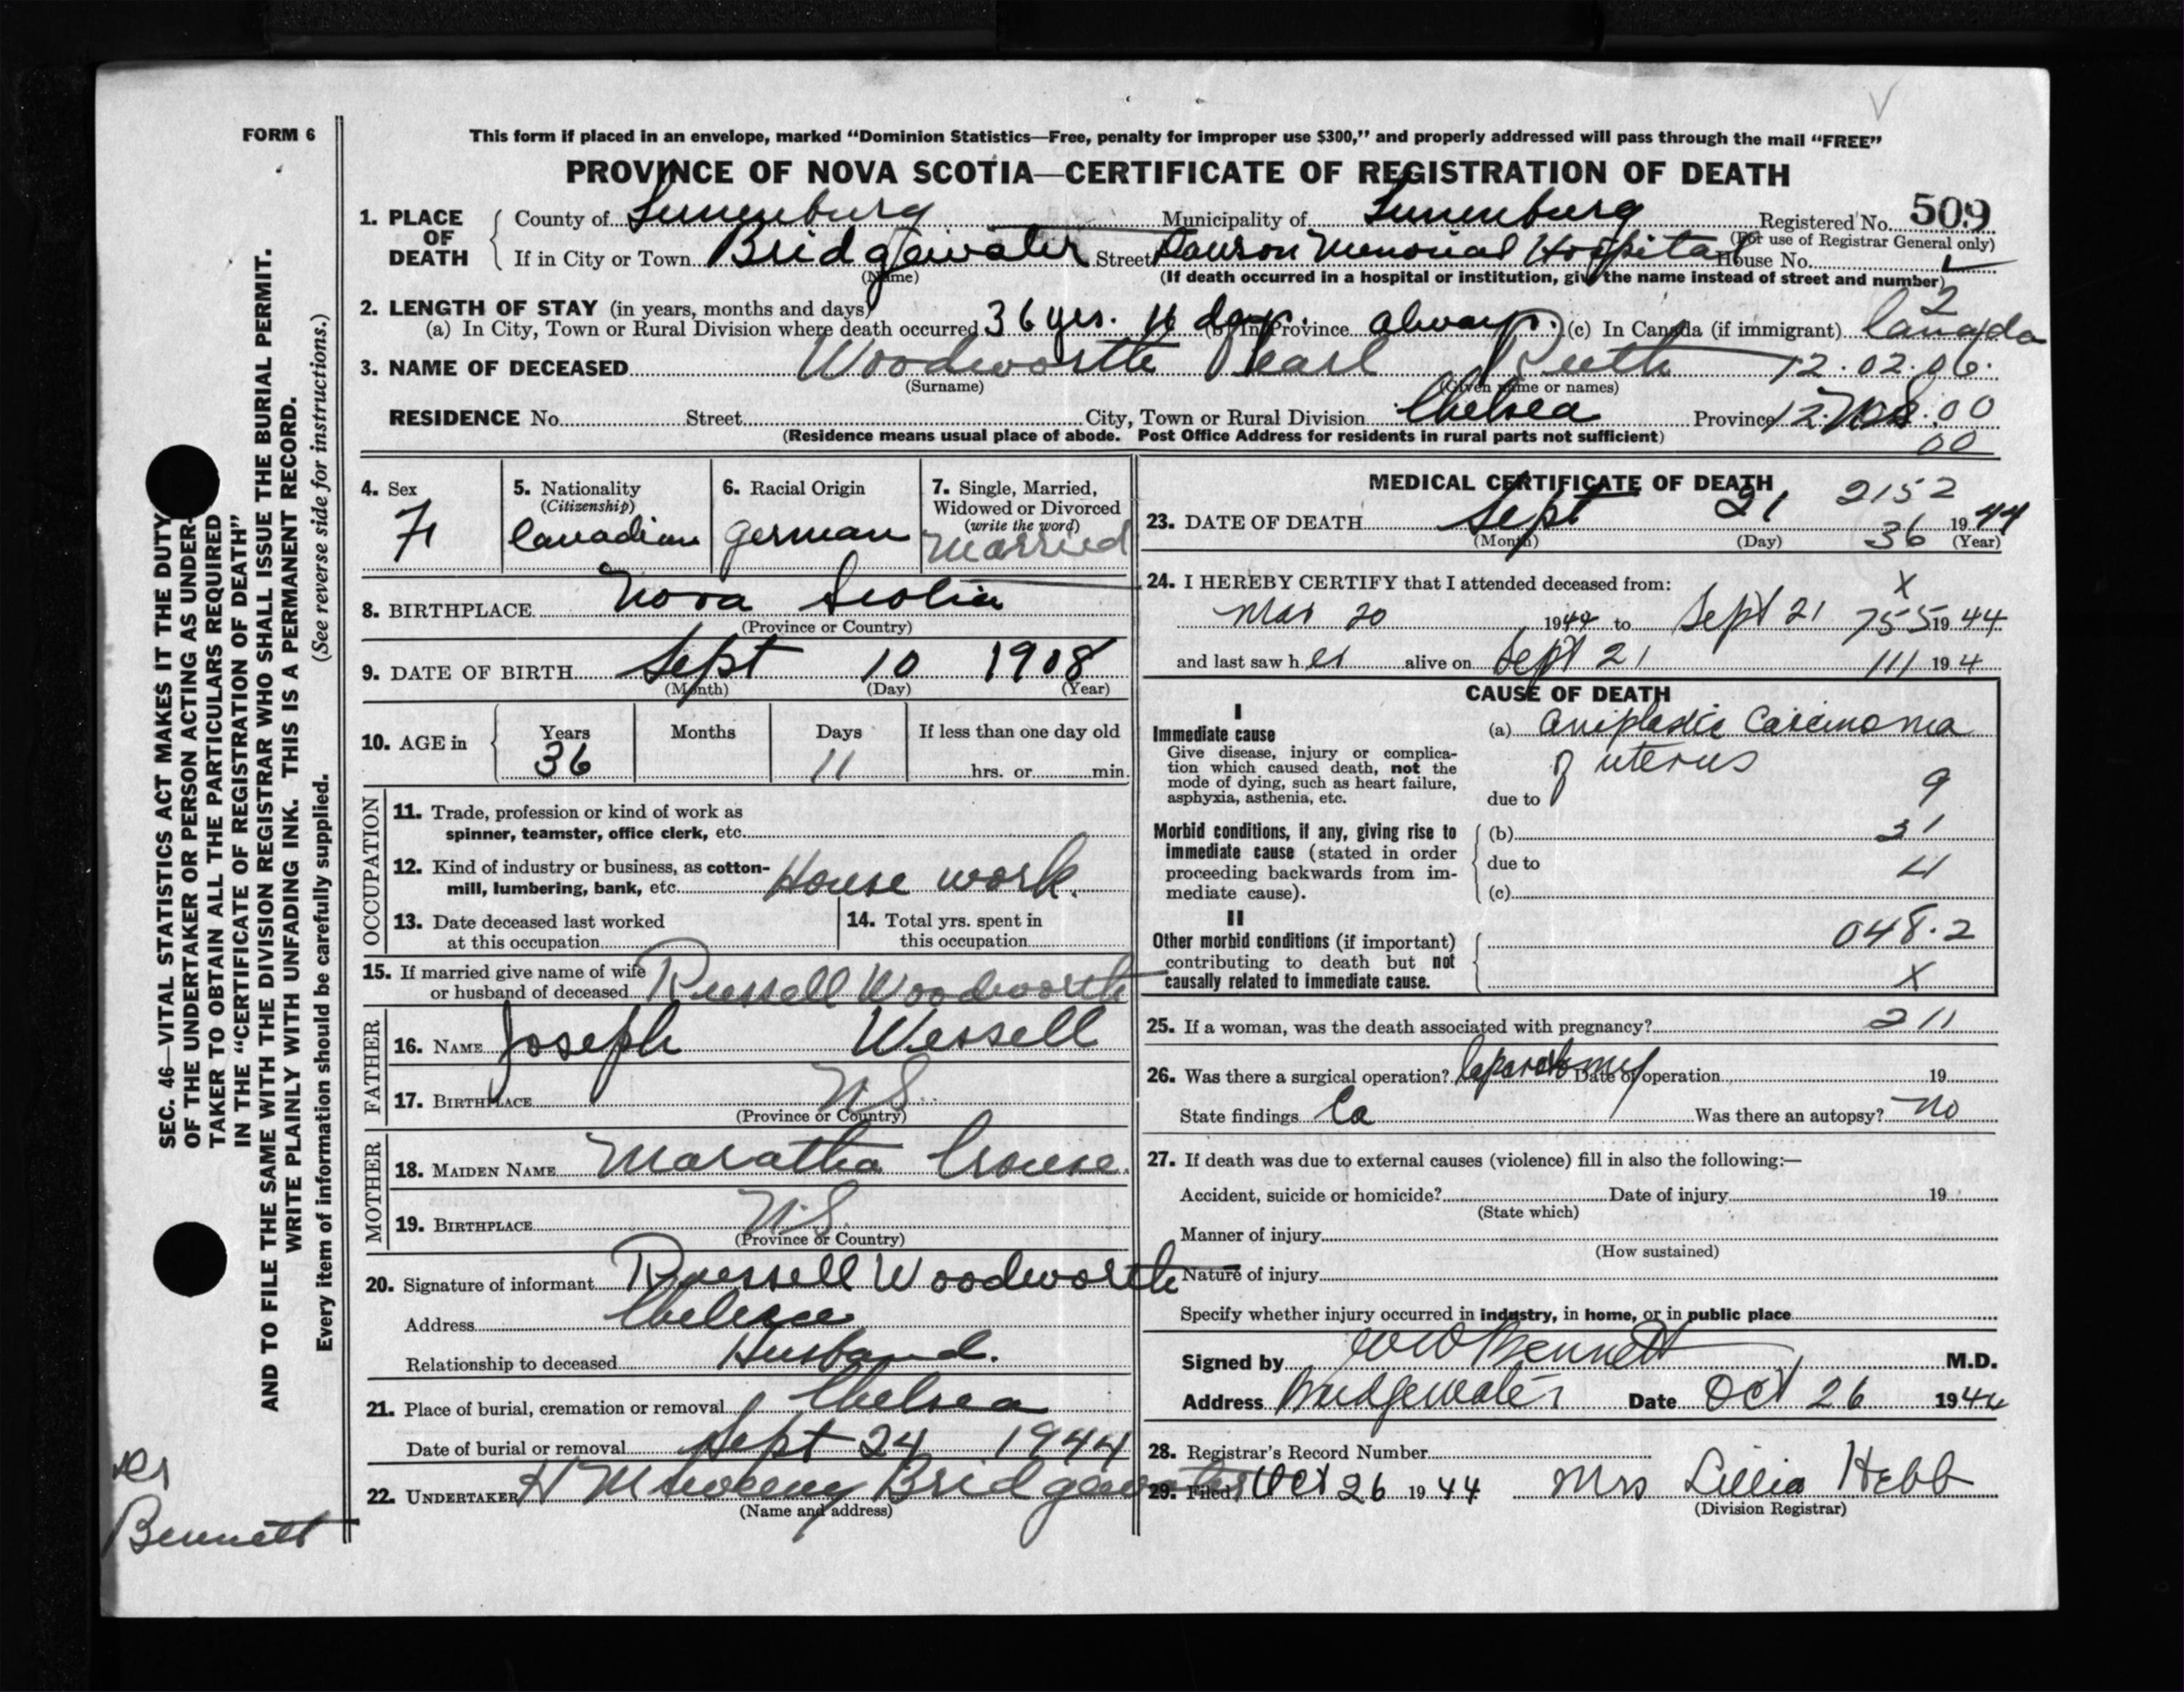 FORM 6
This form if placed in an envelope, marked “Dominion Statistics—Free, penalty for improper use $300,” and properly addressed will pass through the mail “FREE”
PROVINCE OF NOVA SCOTIA—CERTIFICATE OF REGISTRATION OF DEATH
1. PLACE OF DEATH County of Lunenburg Municipality of Lunenburg Registered No. 509
(For use of Registrar General only)
If in City or Town Bridgewater Street Dawson Memorial Hospital House No. 1
(Name) (If death occurred in a hospital or institution, give the name instead of street and number)
2
2. LENGTH OF STAY (in years, months and days)
(a) In City, Town or Rural Division where death occurred 36 yrs. 11 days. (b) In Province always. (c) In Canada (if immigrant) Canada
3. NAME OF DECEASED Woodworth Pearl Ruth 12.02.06.
(Surname) (Given name or names)
RESIDENCE No. Street City, Town or Rural Division Chelsea Province N.S. 12. 00
(Residence means usual place of abode. Post Office Address for residents in rural parts not sufficient) 00
4. Sex F
5. Nationality (Citizenship) Canadian
6. Racial Origin German
7. Single, Married, Widowed or Divorced (write the word) Married
8. BIRTHPLACE Nova Scotia
(Province or Country)
9. DATE OF BIRTH Sept 10 1908
(Month) (Day) (Year)
10. AGE in Years 36 Months Days 11 If less than one day old
hrs. or min.
OCCUPATION
11. Trade, profession or kind of work as
spinner, teamster, office clerk, etc.
12. Kind of industry or business, as cotton-
mill, lumbering, bank, etc. House work.
13. Date deceased last worked
at this occupation
14. Total yrs. spent in
this occupation
15. If married give name of wife
or husband of deceased Russell Woodworth
FATHER
16. NAME Joseph Wessell
17. BIRTHPLACE N.S.
(Province or Country)
MOTHER
18. MAIDEN NAME Maratha Crouse.
19. BIRTHPLACE N.S.
(Province or Country)
20. Signature of informant Russell Woodworth
Address Chelsea
Relationship to deceased Husband.
21. Place of burial, cremation or removal Chelsea
Date of burial or removal Sept 24 1944
22. UNDERTAKER Bridgewater
(Name and address)
MEDICAL CERTIFICATE OF DEATH
2152
23. DATE OF DEATH Sept 21 1944
(Month) (Day) 36 (Year)
24. I HEREBY CERTIFY that I attended deceased from: X
Mar 20 1944 to Sept 21 755 1944
and last saw her alive on Sept 21 111 194
CAUSE OF DEATH
I
Immediate cause
Give disease, injury or complica-
tion which caused death, not the
mode of dying, such as heart failure,
asphyxia, asthenia, etc.
(a) Aniplastic Carcinoma
of uterus
due to 9
Morbid conditions, if any, giving rise to
immediate cause (stated in order
proceeding backwards from im-
mediate cause).
(b) 31
due to 4
(c)
II
Other morbid conditions (if important)
contributing to death but not
causally related to immediate cause.
048.2
X
25. If a woman, was the death associated with pregnancy? 211
26. Was there a surgical operation? laparotomy Date of operation 19
State findings Ca Was there an autopsy? No
27. If death was due to external causes (violence) fill in also the following:—
Accident, suicide or homicide? Date of injury 19
(State which)
Manner of injury
(How sustained)
Nature of injury
Specify whether injury occurred in industry, in home, or in public place
Signed by Bennett M.D.
Address Bridgewater Date Oct 26 1944
28. Registrar’s Record Number
29. Filed Oct 26 1944 Mrs Lillia Hebb
(Division Registrar)
SEC. 46—VITAL STATISTICS ACT MAKES IT THE DUTY
OF THE UNDERTAKER OR PERSON ACTING AS UNDER-
TAKER TO OBTAIN ALL THE PARTICULARS REQUIRED
IN THE “CERTIFICATE OF REGISTRATION OF DEATH”
AND TO FILE THE SAME WITH THE DIVISION REGISTRAR WHO SHALL ISSUE THE BURIAL PERMIT.
WRITE PLAINLY WITH UNFADING INK. THIS IS A PERMANENT RECORD.
Every item of information should be carefully supplied. (See reverse side for instructions.)
Dr
Bennett